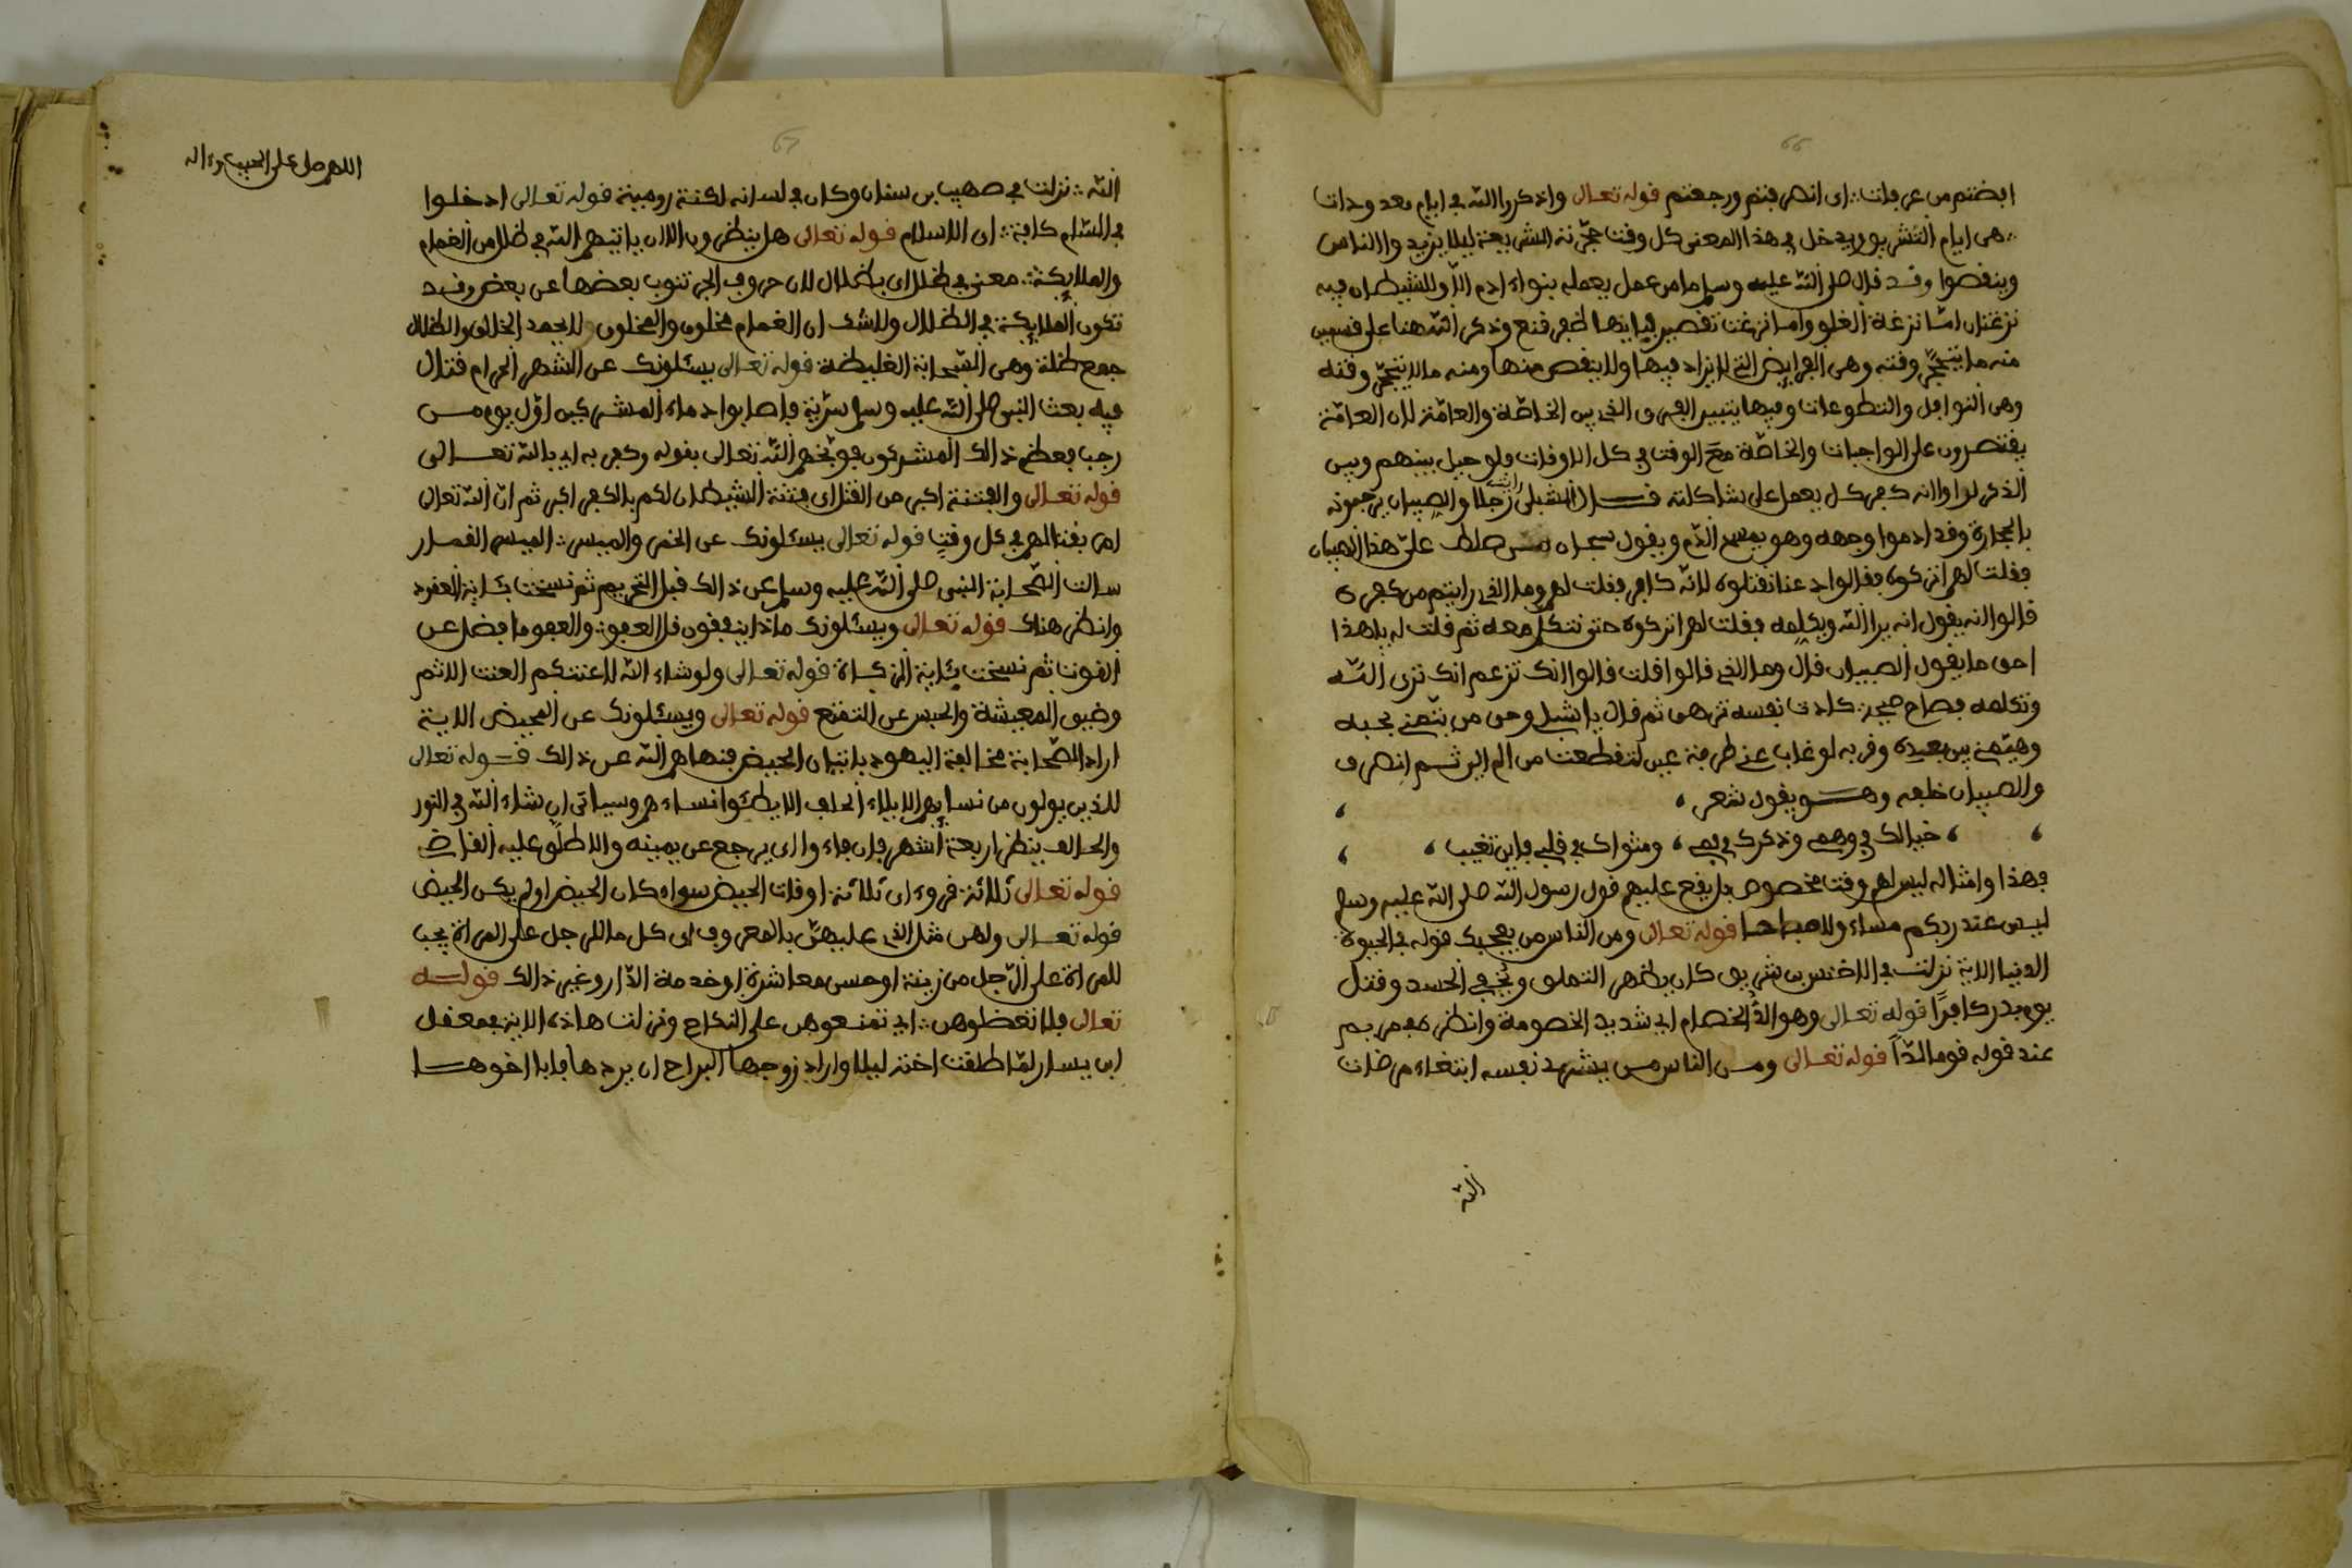 66
افضتم من عرفات ∴ اى انصرفتم ورجعتم قوله تعالى واذكروا الله في ايام معدودات
∴ هى ايام التشريق ويدخل في هذا المعنى كل وقت حجّرته الشريعة ليلا يزيدوا الناس
وينقصوا وقد قال صلى الله عليه وسلم ما من عمل يعمله بنواء ادم الا وللشيطان فيه
نزغتان امّا نزغة الغلو واما نزغت تقصير بايتها ظفر قنع وذكر الله هنا على قسمين
منه ما يتحجّر وقته وهى الفرايض التي لا يزاد فيها ولا ينقص منها ومنه ما لا يتحجّر وقته
وهى النوافل والتطوعات وفيها يتبين الفرق الذي بين الخاصّة والعامّة لان العامّة
يقتصرون على الواجبات والخاصّة مع الوقت في كل الاوقات ولو حيل بينهم وبين
الذكر لراوا انه كفر كل يعمل على شاكلته قال الشبلى رايت رجلا والصبيان يرجمونه
بالحجارة وقد ادموا وجهه وهو يمسح الدّم ويقول سبحان من سلط علىّ هذا الصبيان
فقلت لهم اتركوه فقالوا دعنا نقتلوه لانّه كافر فقلت لهم وما الذي رايتم من كفره
قالوا انه يقول انه يرا الله ويكلمه فقلت لهم اتركوه حتى نتكلم معه ثم قلت له يا هذا
احق ما يقول الصبيان قال وما الذي قالوا قلت قالوا انك تزعم انك ترى الله
وتكلمه فصاح صيحة كادت نفسه تزهق ثم قال يا شبلى وحق من يتمنى بحبه
وهيّمني بين بعيده وقربه لو غاب عني طرفة عين لتقطعت من الم البين ثم انصرف
والصبيان خلفه وهو يقول شعر ،
، خيالك في وهمي وذكرك في فمي ، ومثواك في قلبي فاين تغيب ،
فهذا وامثاله ليس لهم وقت مخصوص بل يقع عليهم قول رسول الله صلى الله عليه وسلم
ليس عند ربكم مساء ولا صباحا قوله تعالى ومن الناس من يعجبك قوله في الحيوة
الدنيا الاية نزلت في الاخنس بن شريق كان يظهر التملق ويخفي الحسد وقتل
يوم بدر كافرًا قوله تعالى وهو الدّ الخصام اي شديد الخصومة وانظر في مريم
عند قوله قوما لدّاً قوله تعالى ومن الناس من يشري نفسه ابتغاء مرضات
الله
67
اللهم صل على الحبيب وءاله
الله ∴ نزلت في صهيب بن سنان وكان في لسانه لكنة رومية قوله تعالى ادخلوا
في السّلم كافة ∴ اى الاسلام قوله تعالى هل ينظرون الا ان ياتيهم الله في ظلل من الغمام
والملايكة ∴ معنى في ظلل اى بظلال لان حروف الجر تنوب بعضها عن بعض وقد
تكون الملايكة في الظلال ولا شك ان الغمام مخلوق والمخلوق لا يحمد الخالق والظلال
جمع ظلة وهى السّحابة الغليظة قوله تعالى يسئلونك عن الشهر الحرام قتال
فيه بعث النبى صلى الله عليه وسلم سريّة فاصابوا دماء المشركين اوّل يوم من
رجب فعظم ذالك المشركون فوبّخهم الله تعالى بقوله وكفر به اي بالله تعالى
قوله تعالى والفتنة اكبر من القتل اى فتنة الشيطان لكم بالكفر اكبر ثم انّ الله تعالى
امر بقتالهم في كل وقت قوله تعالى يسئلونك عن الخمر والميسر ∴ الميسر القمار
سالت الصّحابة النبى صلى الله عليه وسلم عن ذالك قبل التحريم ثم نسخت بئاية العقود
وانظر هناك قوله تعالى ويسئلونك ماذا ينفقون قل العفو ∴ والعفو ما فضل عن
القوت ثم نسخت بئاية الزكاة قوله تعالى ولو شاء الله لاعنتكم العنت الاثم
وضيق المعيشة والحبس عن التمتع قوله تعالى ويسئلونك عن المحيض الاية
اراد الصّحابة مخالفة اليهود باتيان الحيض فنهاهم الله عن ذالك قوله تعالى
للذين يولون من نسايهم الايلاء الحلف الا يطئوا نساءهم وسياتى ان شاء الله في النور
والحالف ينظر اربعة اشهر فان فاءو اى يرجع عن يمينه والا طلّق عليه القاضي
قوله تعالى ثلاثة قروء اى ثلاثة اوقات الحيض سواء كان الحيض او لم يكن الحيض
قوله تعالى ولهن مثل الذي عليهنّ بالمعروف اى كل ما للرجل على المراة يجب
للمراة على الرّجل من زينة او حسن معاشرة او خدمة الدّار وغير ذالك قوله
تعالى فلا تعضلوهن ∴ اي تمنعوهن على النكاح ونزلت هاذه الاية في معقل
ابن يسار لمّا طلقت اخته ليلا واراد زوجها البراح ان يردها فابا اخوها